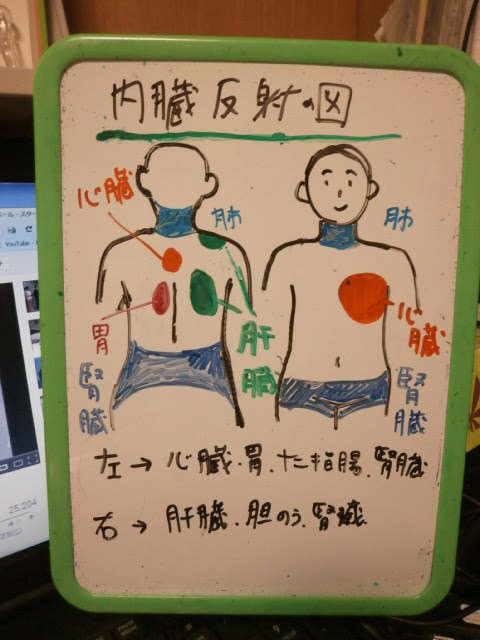 内臓反射の図
心臓
肺
肺
胃
肝臓
心臓
腎臓
腎臓
左→心臓・胃、十二指腸、腎臓
右→肝臓、胆のう、腎臓
YouTube
25,204